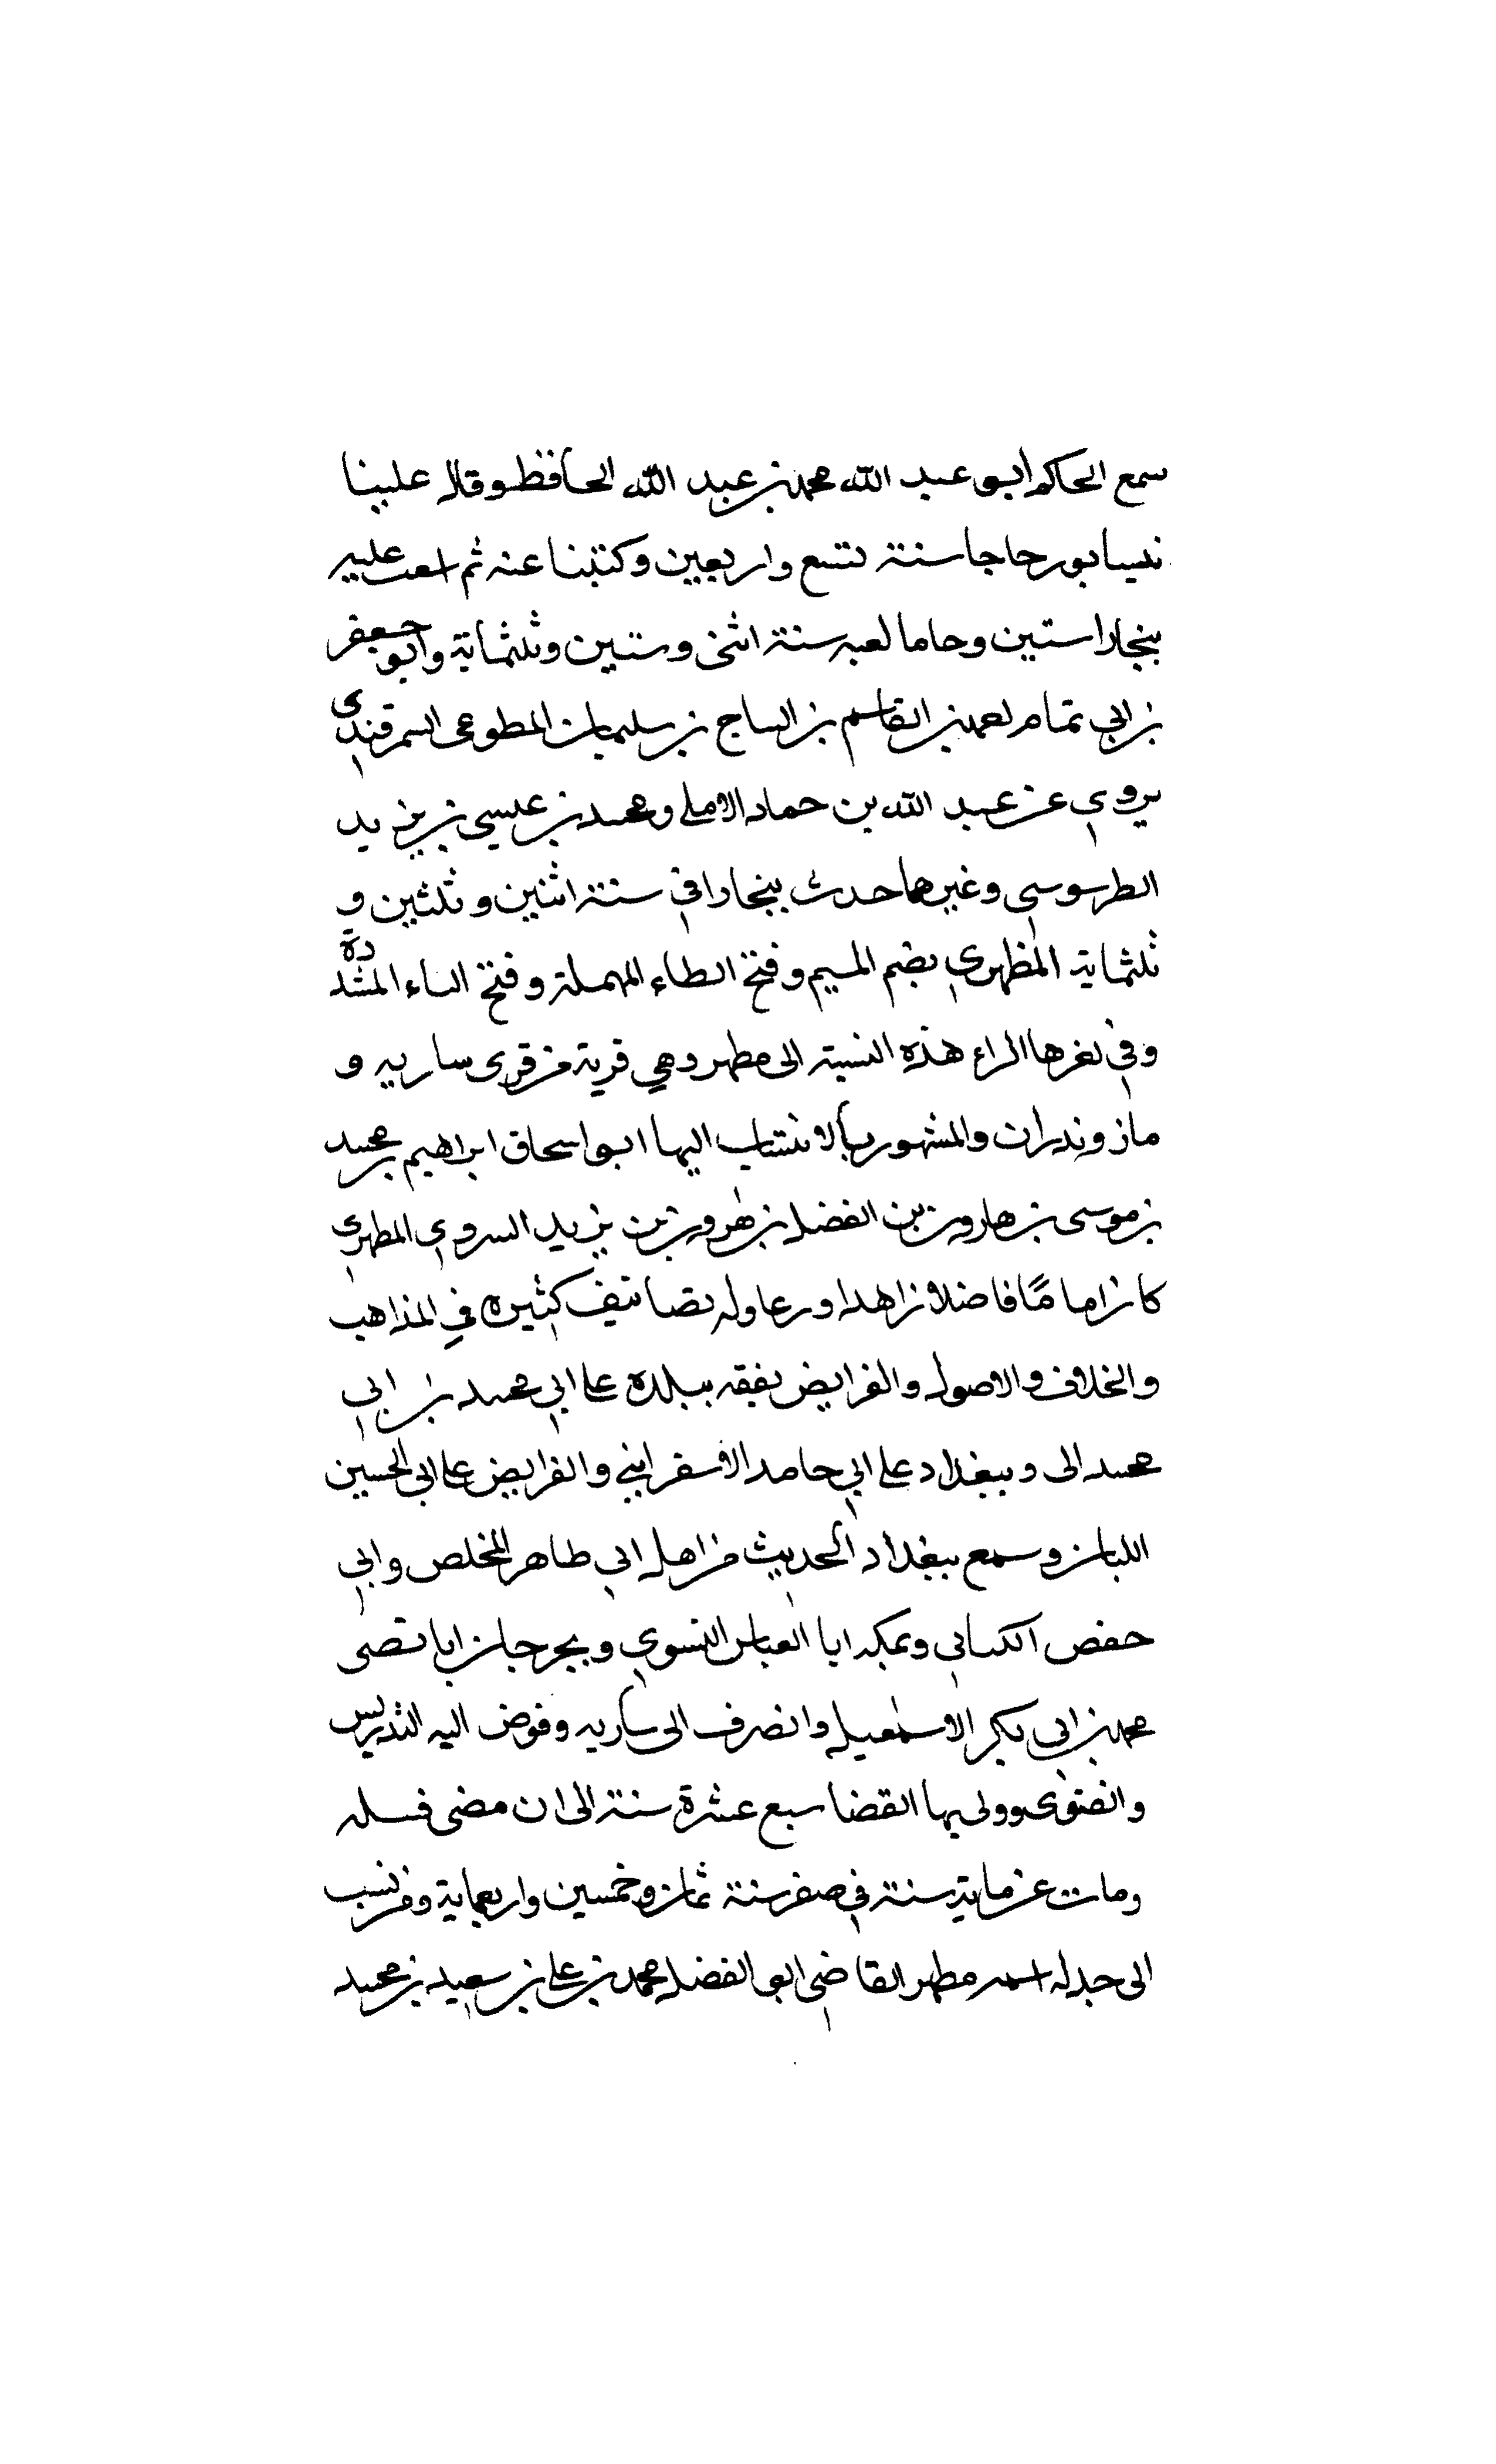 سمع الحاكم ابو عبد الله محمد بن عبد الله الحافظ وقال علينا
نيسابور حاجا سنة تسع واربعين وكتبنا عنه ثم عليه
ببخارا ستين وحاما سنة اثنى وستين وثلثماية وابو جعفر
بن ابي تمام بن القاسم بن الساج بن سليمان المطوعى السمرقندى
يروى عن عبد الله بن حماد الاملى ومحمد بن عيسى بن يزيد
الطرسوسى وغيرهما حدث ببخارا فى سنة اثنين وثلثين و
ثلثماية المطهرى بضم الميم وفتح الطاء المهملة وفتح الهاء المشددة
وفى اخرها الراء هذه النسبة الى مطهر وهى قرية من قرى ساريه و
مازوندران والمشهور بالانتساب اليها ابو اسحاق ابراهيم بن محمد
بن موسى بن هارون بن الفضل بن هرون بن يزيد السروى المطهرى
كان اماما فاضلا زاهدا ورعا وله تصانيف كثيرة فى المذاهب
والخلاف والاصول والفرايض تفقه ببلده على ابى محمد بن ابى
وببغداد على ابى حامد الاسفراينى والفرايض على ابى الحسين
اللبان وسمع ببغداد الحديث من اهل ابى طاهر المخلص وابى
حفص الكتانى وبمكه ابا العباس النسوى وبجرجان ابا نصر
محمد بن ابى بكر الاسمعيلى وانصرف الى ساريه وفوض اليه التدريس
والفتوى وولى بها القضا سبع عشرة سنة الى ان مضى
ومات عن ماية سنة فى صفر سنة ثمان وخمسين واربعماية ومن نسب
الى جد له اسمه مطهر القاضى ابو الفضل محمد بن على بن سعيد بن محمد